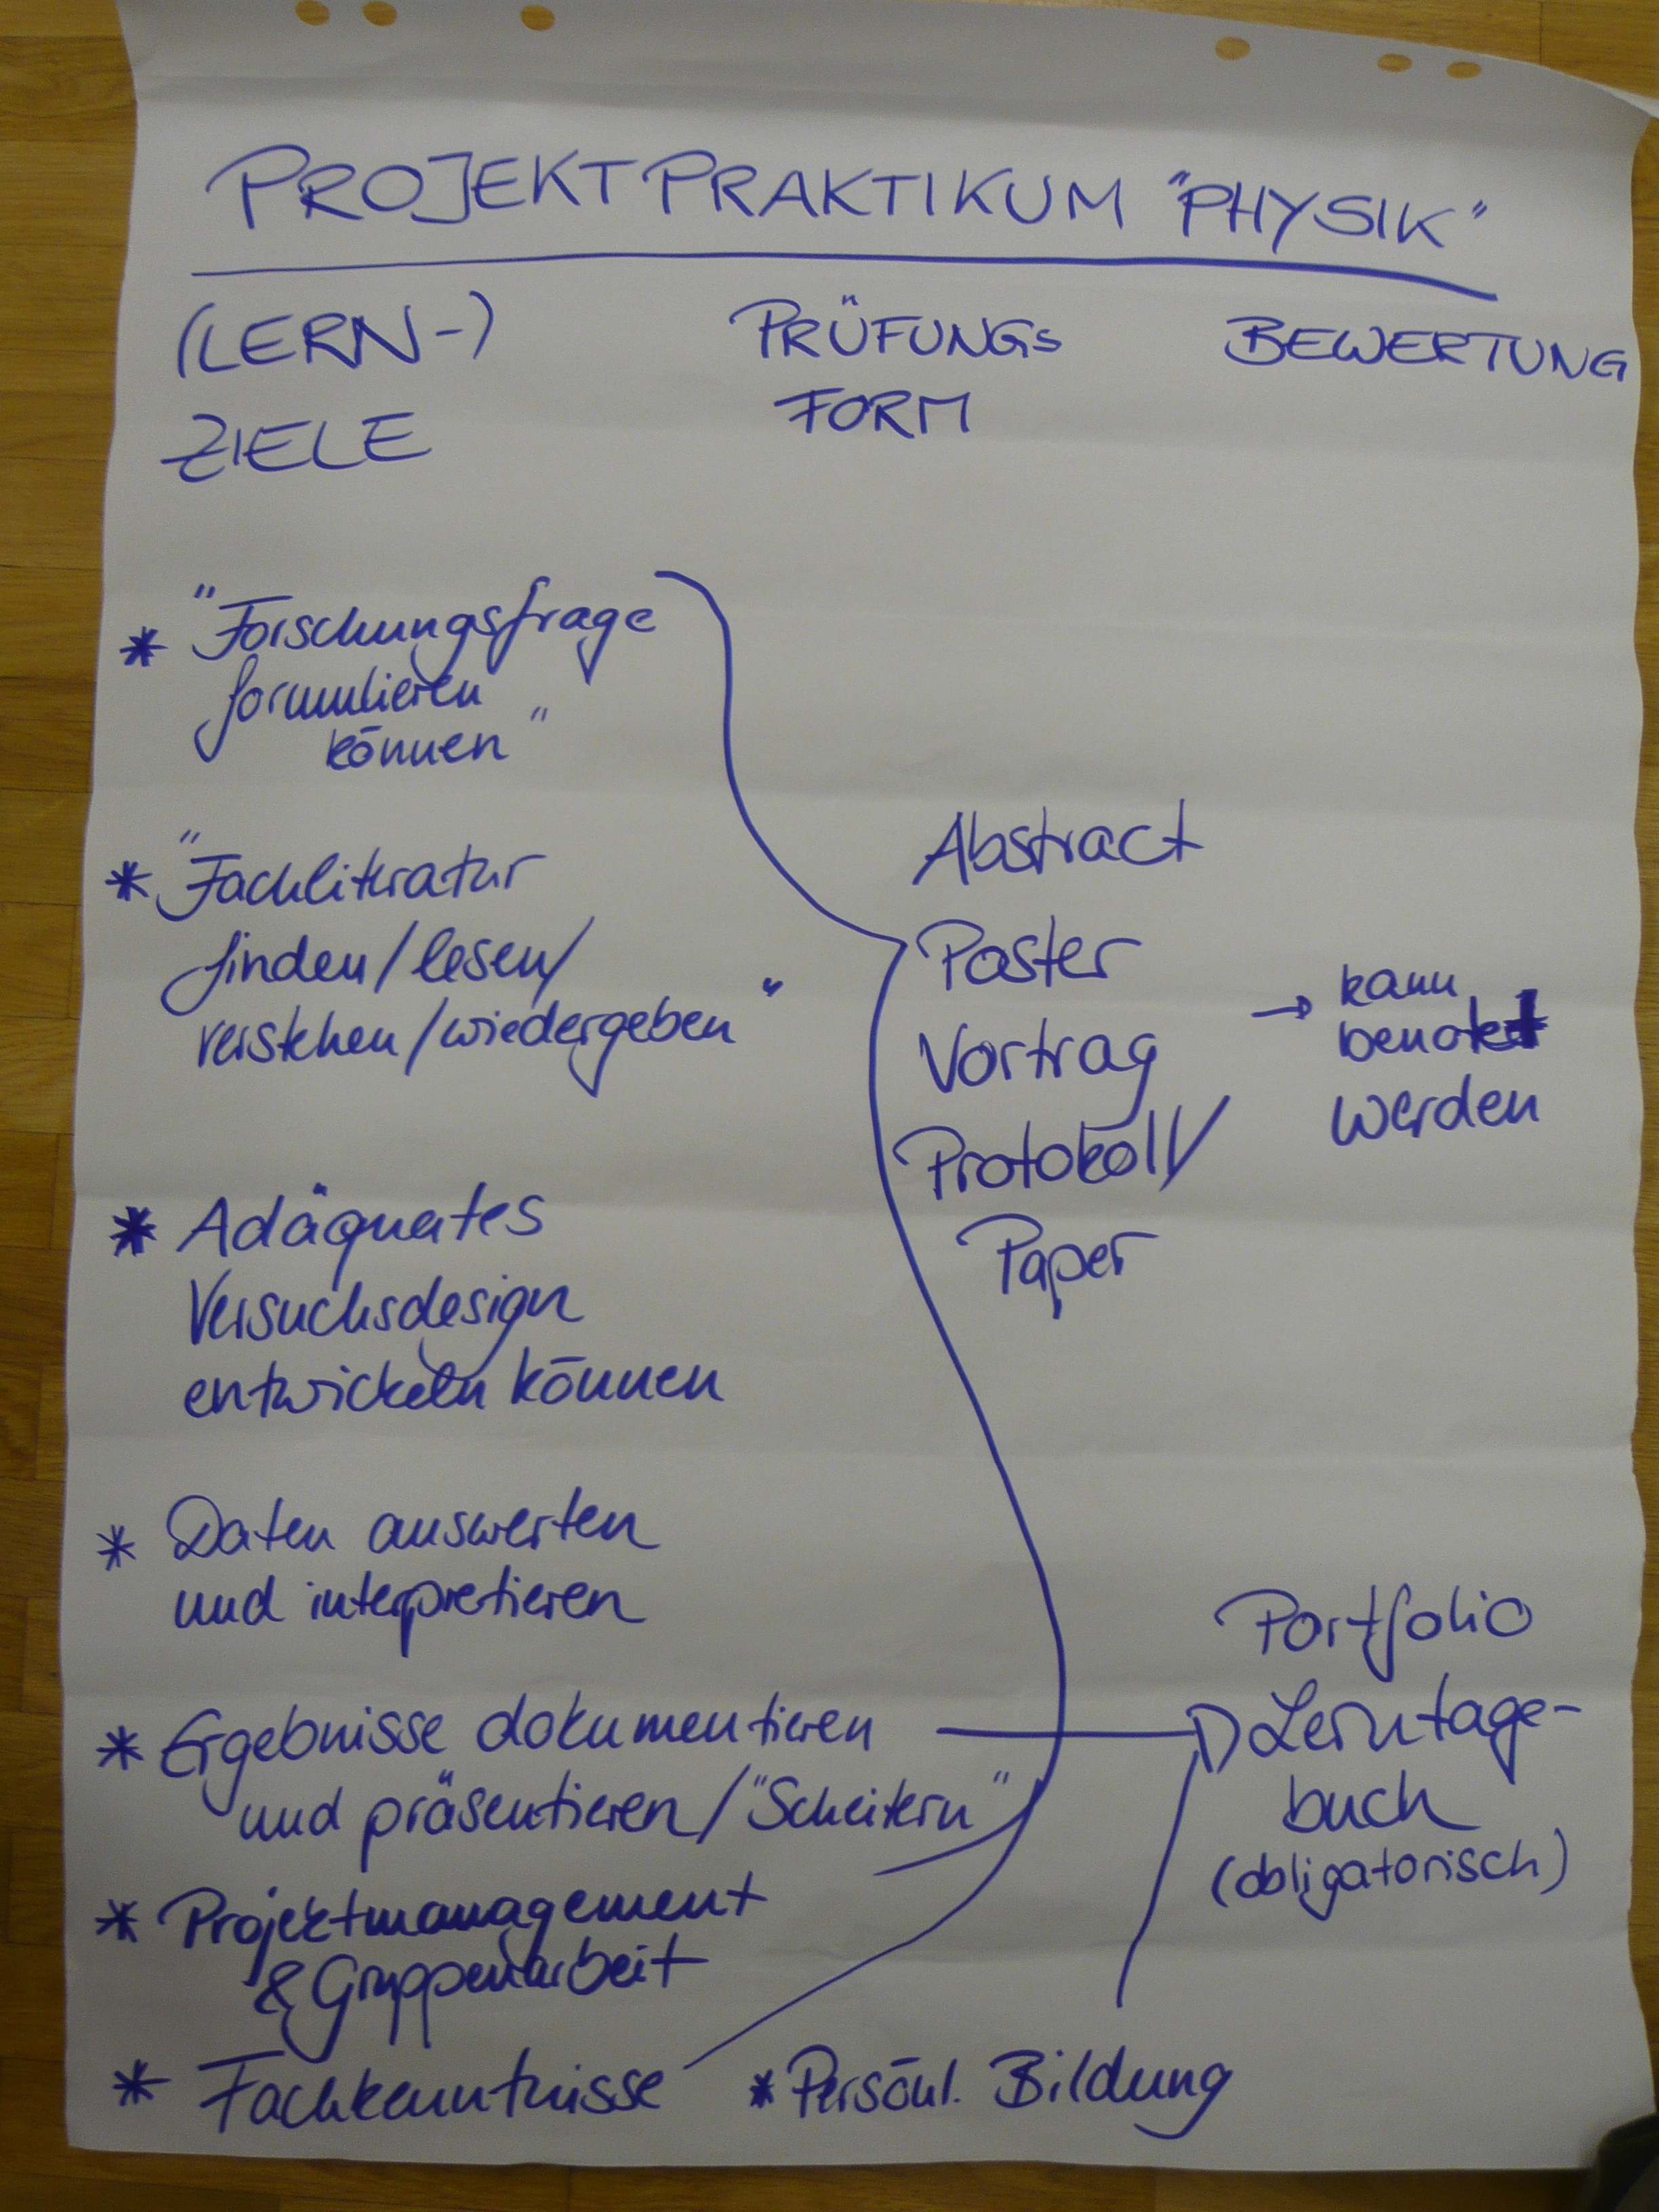 PROJEKTPRAKTIKUM "PHYSIK"
(LERN-)
ZIELE
PRÜFUNGS
FORM
BEWERTUNG
* "Forschungsfrage
formulieren
können"
* "Fachliteratur
finden/lesen/
verstehen/wiedergeben"
* Adäquates
Versuchsdesign
entwickeln können
* Daten auswerten
und interpretieren
* Ergebnisse dokumentieren
und präsentieren/"Scheitern"
* Projektmanagement
& Gruppenarbeit
* Fachkenntnisse
* Persönl. Bildung
Abstract
Poster
Vortrag
Protokoll/
Paper
→ kann
benotet
werden
Portfolio
Lerntage-
buch
(obligatorisch)